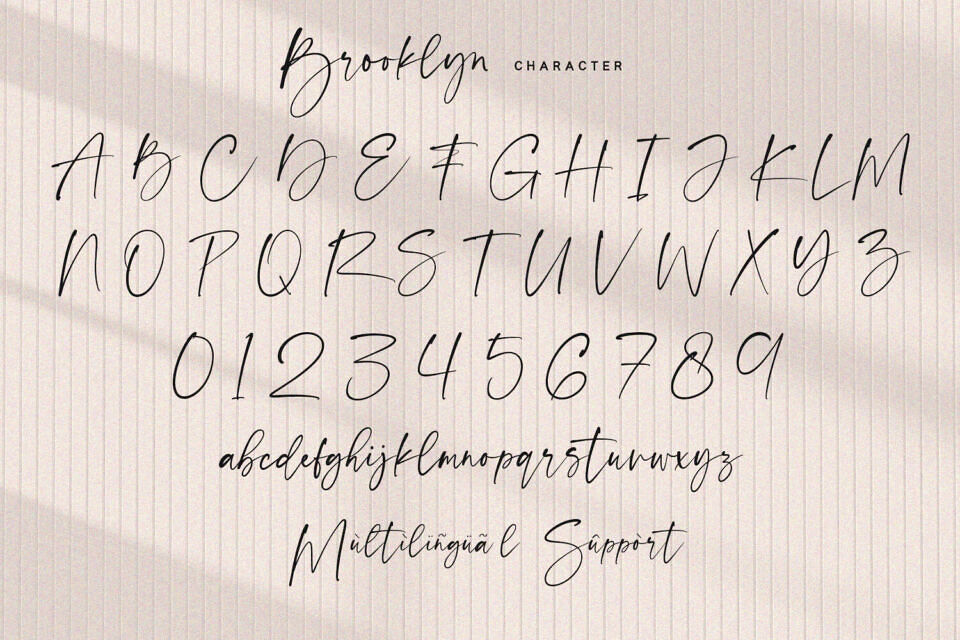 Brooklyn CHARACTER
A B C D E F G H I J K L M
N O P Q R S T U V W X Y Z
0 1 2 3 4 5 6 7 8 9
abcdefghijklmnopqrstuvwxyz
Mùltìlïñgüãl Sûppòrt